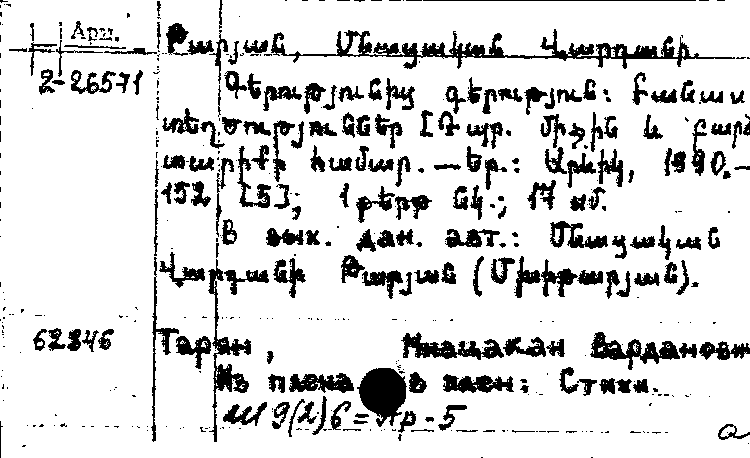 Арм.
Թարյան, Մնացական Վարդանի.
2-26571
Գերությունից գերություն: Բանաս
տեղծություններ [Դպր. միջին և բարձ
տարիքի համար. — Եր.: Արևիկ, 1990.—
152, [5]; 1 թերթ նկ.; 17 սմ.
В вых. дан. авт.: Մնացական
Վարդանի Թարյան (Մխիթարյան).
62346 Тарян, Мнацакан Варданович
Из плена в плен: Стихи.
Ш 9(2)6=Ар-5